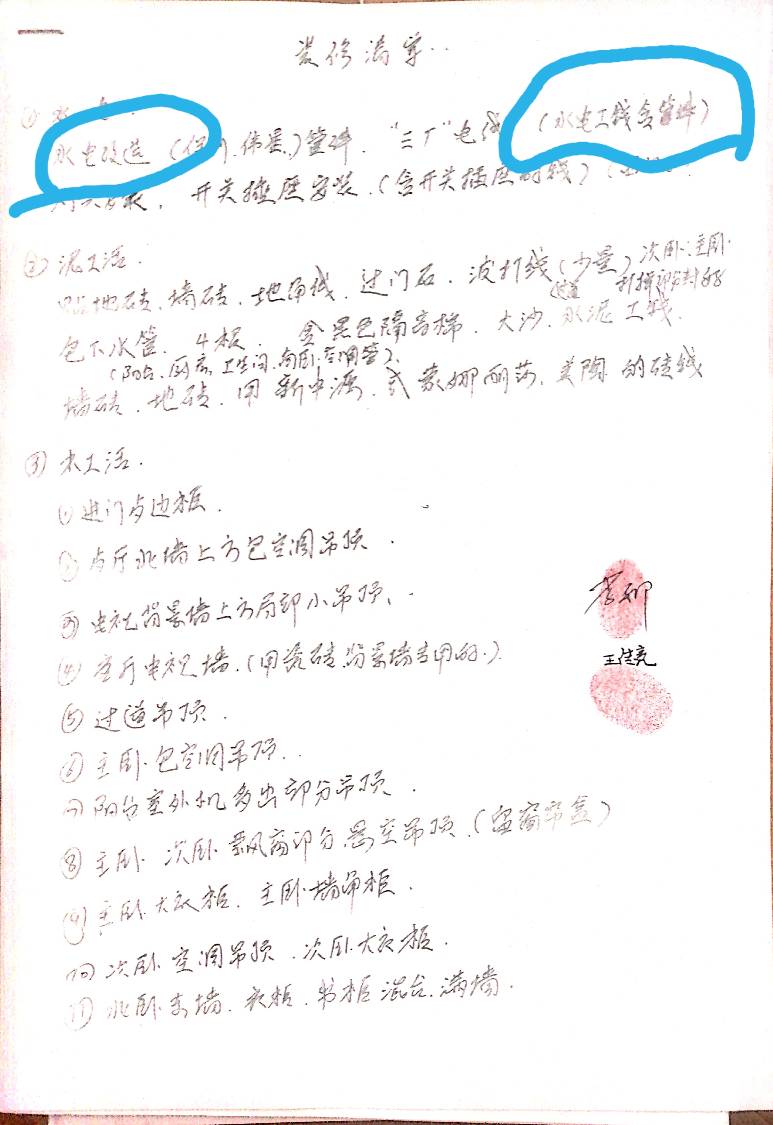 装修清单..
① 水电.
水电改造(伟星)管件."三厂"电线(水电工线含管件)
开关插座安装.(含开关插座的线)
② 泥工活.
地砖.墙砖.地角线.过门石.波打线(少量)次卧.主卧.
包下水管. 4根. 含黑色隔音棉.大沙.水泥工线.
(阳台.厨房.卫生间.空调管).
墙砖.地砖.用新中源.或蒙娜丽莎.美陶的砖线
③ 木工活.
① 进门右边柜.
② 客厅北墙上方包空调吊顶.
③ 电视背景墙上方局部小吊顶.
④ 客厅电视墙.(用瓷砖.背景墙专用的.)
⑤ 过道吊顶.
⑥ 主卧包空调吊顶..
⑦ 阳台室外机多出部分吊顶.
⑧ 主卧.次卧飘窗部分悬空吊顶.(留窗帘盒)
⑨ 主卧大衣柜.主卧墙吊柜.
⑩ 次卧空调吊顶.次卧大衣柜.
⑪ 北卧东墙.衣柜.书柜混合.满墙.
王佳亮